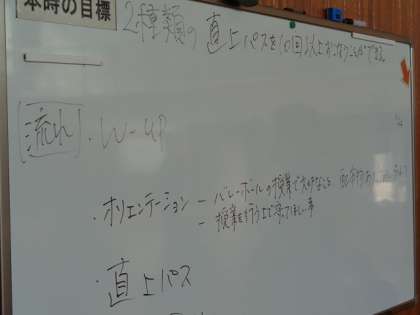 本時の目標
2種類の直上パスを10回以上おこなうことができる。
流れ ・W-up
・オリエンテーション - バレーボールの授業で大切なこと
- 授業を行う上で守ってほしい事
・直上パス